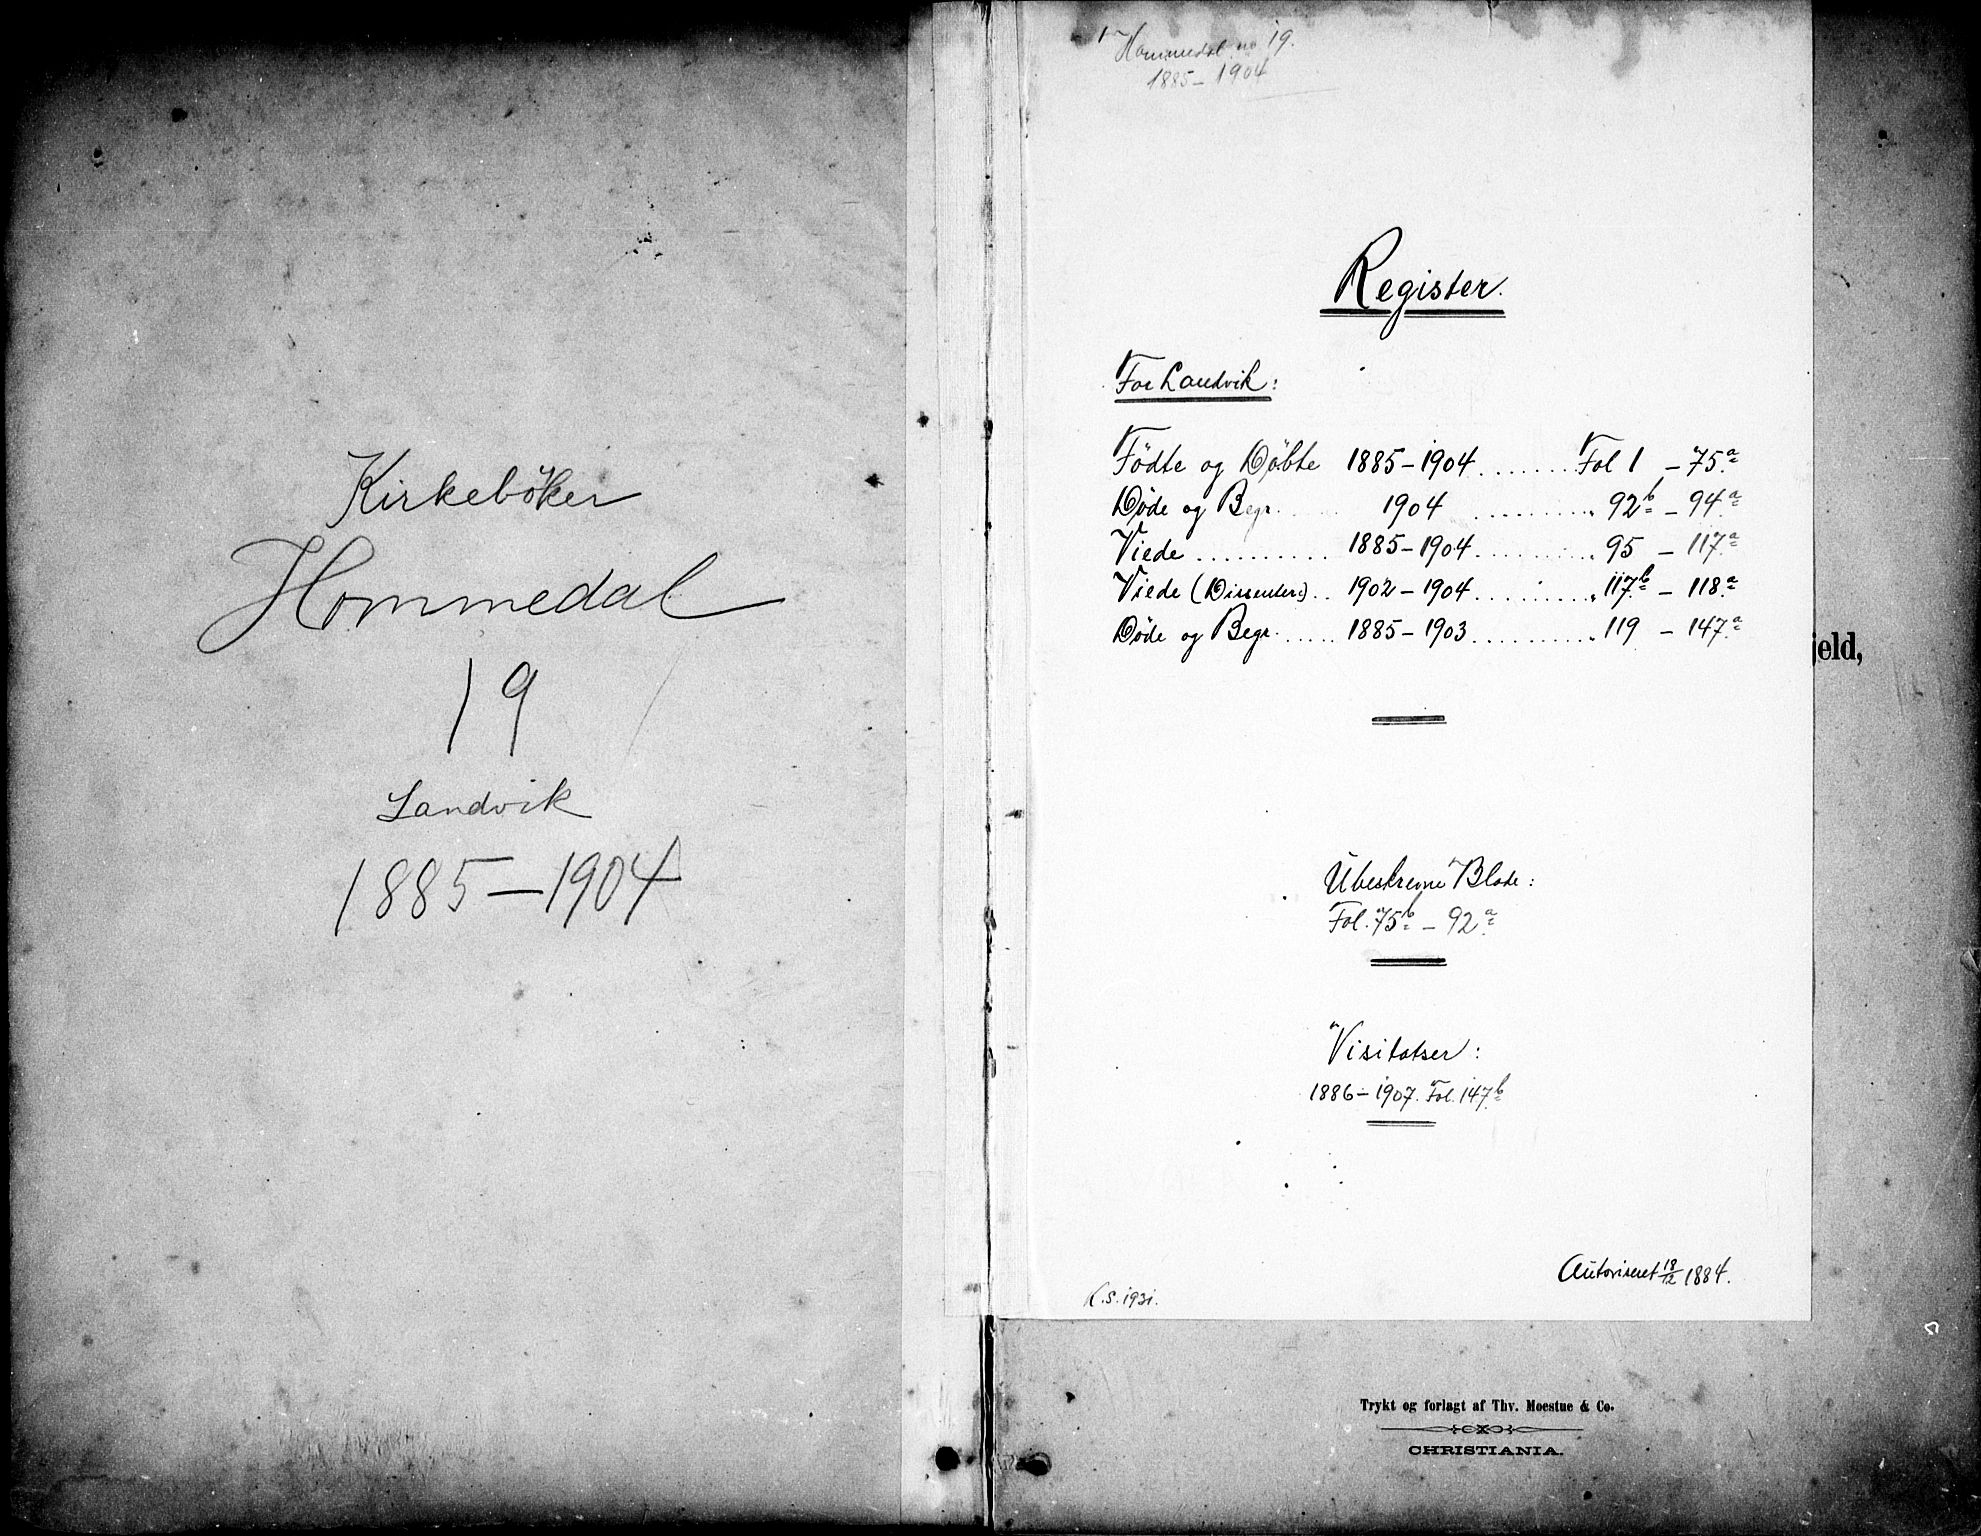 Kirkebøker
Hommedal
19
Landvik
1885–1904
Hommedal no 19.
1885–1904
Register.
For Landvik:
Fødte og Døbte 1885–1904 ........ Fol 1 – 75a
Døde og Begr. ..... 1904 .......... „ 92b – 94a
Viede .......... 1885–1904 .......... „ 95 – 117a
Viede (Dissenter:) .. 1902–1904 .......... „ 117b – 118a
Døde og Begr. ..... 1885–1903 .......... „ 119 – 147a
jeld,
Ubeskrevne Blade:
Fol. 75b – 92a
Visitatser:
1886–1907. Fol. 147b
Autoriseret 18/12 1884.
K.S. 1931.
Trykt og forlagt af Thv. Moestue & Co.
CHRISTIANIA.